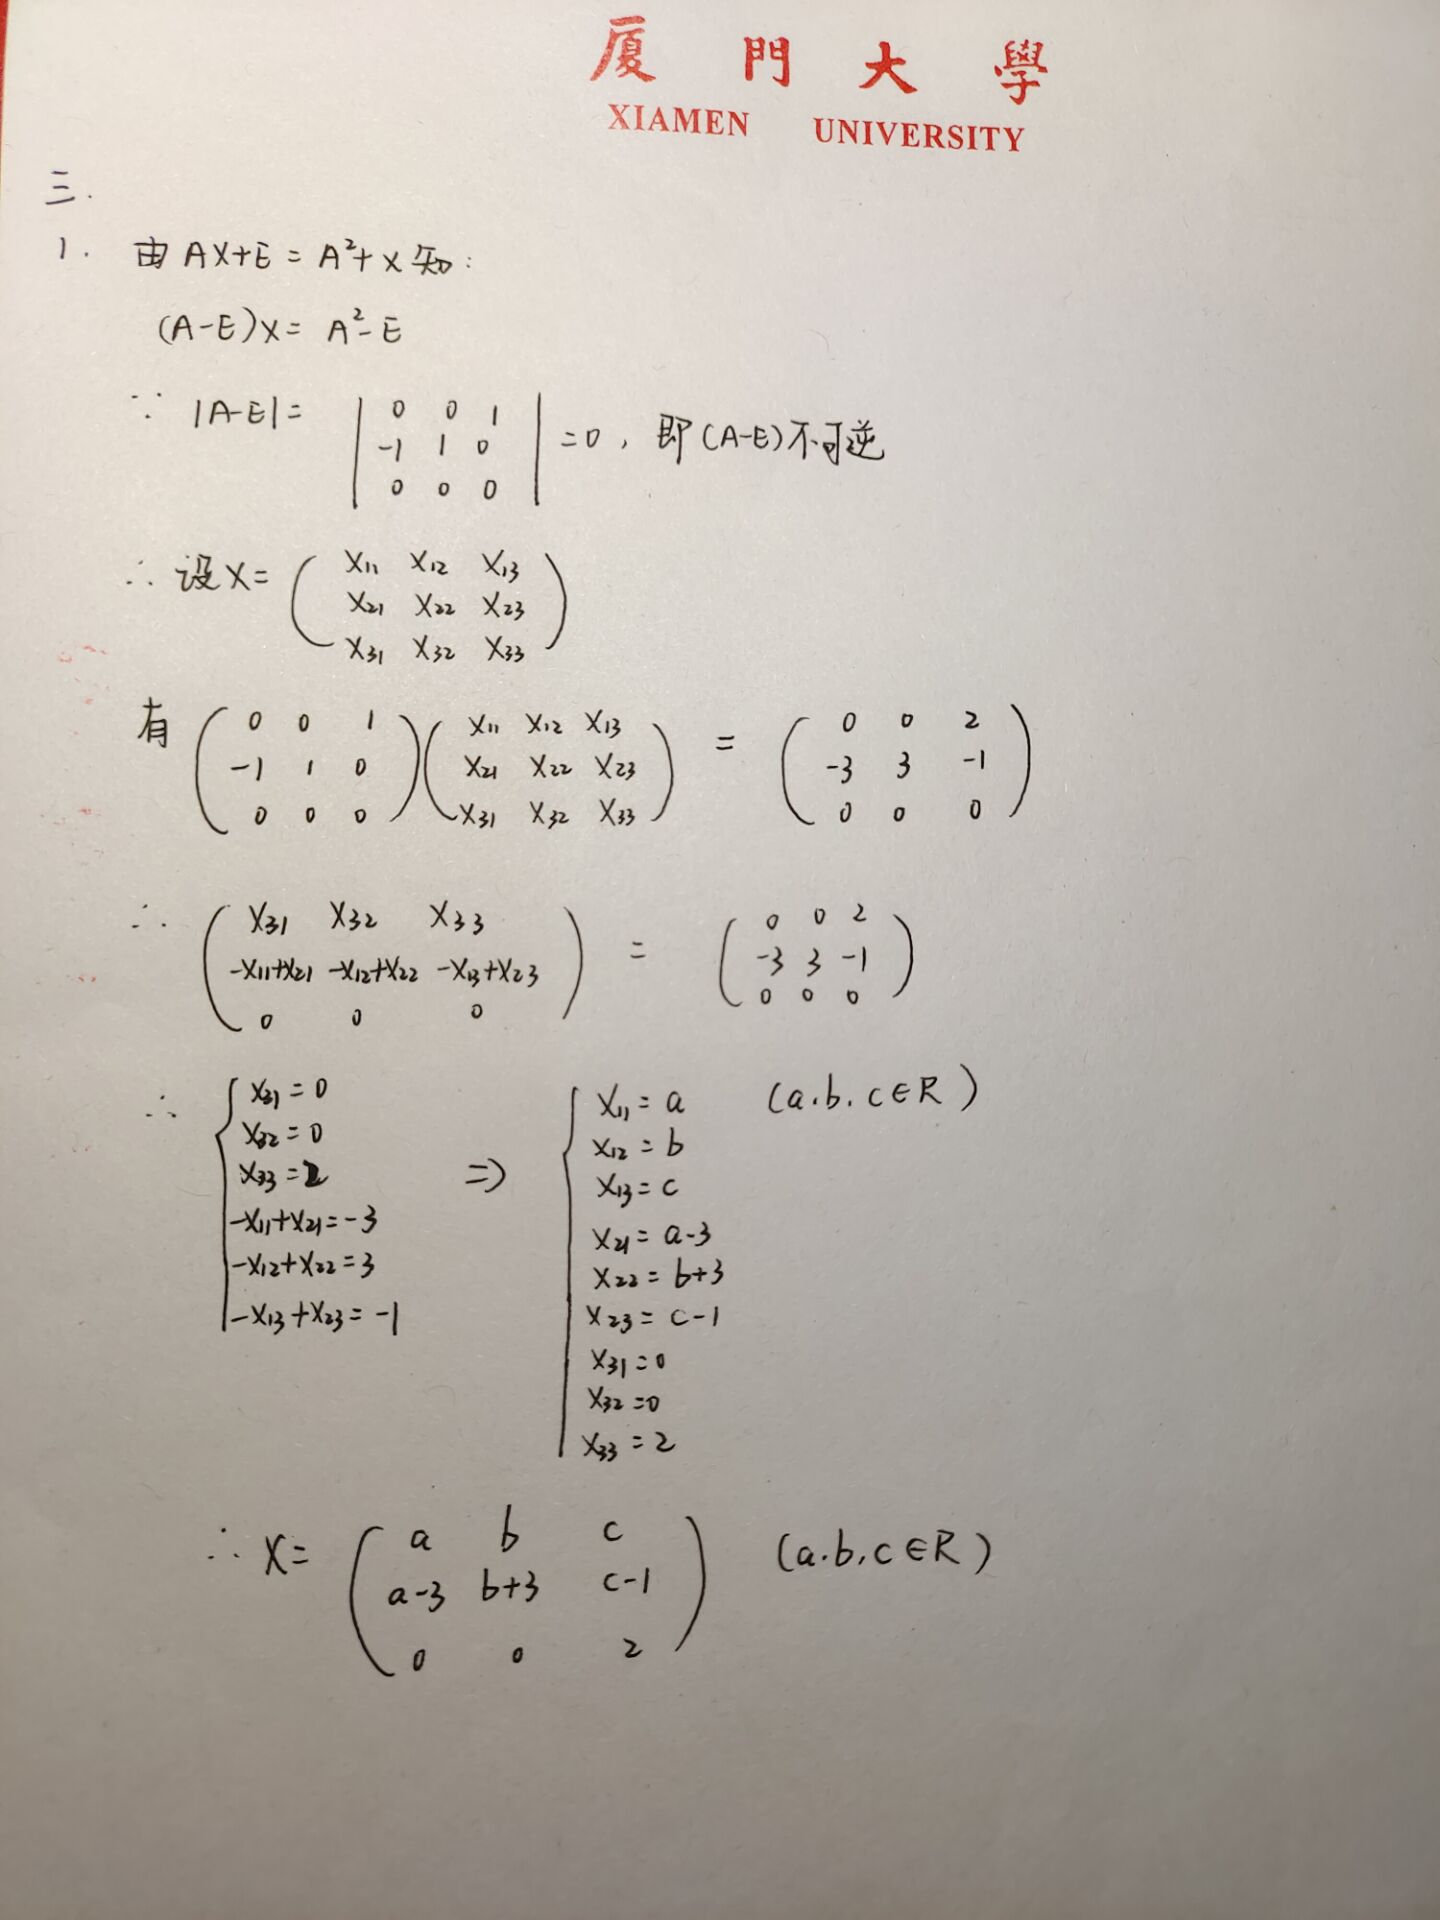 厦門大學
XIAMEN UNIVERSITY
三.
1. 由AX+E=A²+X知:
(A-E)X=A²-E
∵ |A-E|= | 0 0 1
-1 1 0
0 0 0 | =0, 即(A-E)不可逆
∴ 设X= ( X₁₁ X₁₂ X₁₃
X₂₁ X₂₂ X₂₃
X₃₁ X₃₂ X₃₃ )
有 ( 0 0 1 ) ( X₁₁ X₁₂ X₁₃ ) = ( 0 0 2 )
( -1 1 0 ) ( X₂₁ X₂₂ X₂₃ ) ( -3 3 -1 )
( 0 0 0 ) ( X₃₁ X₃₂ X₃₃ ) ( 0 0 0 )
∴ ( X₃₁ X₃₂ X₃₃ ) = ( 0 0 2 )
( -X₁₁+X₂₁ -X₁₂+X₂₂ -X₁₃+X₂₃ ) ( -3 3 -1 )
( 0 0 0 ) ( 0 0 0 )
∴ { X₃₁=0
X₃₂=0
X₃₃=2
-X₁₁+X₂₁=-3
-X₁₂+X₂₂=3
-X₁₃+X₂₃=-1
⇒ { X₁₁=a (a.b.c∈R)
X₁₂=b
X₁₃=c
X₂₁=a-3
X₂₂=b+3
X₂₃=c-1
X₃₁=0
X₃₂=0
X₃₃=2
∴ X= ( a b c
a-3 b+3 c-1
0 0 2 ) (a.b.c∈R)